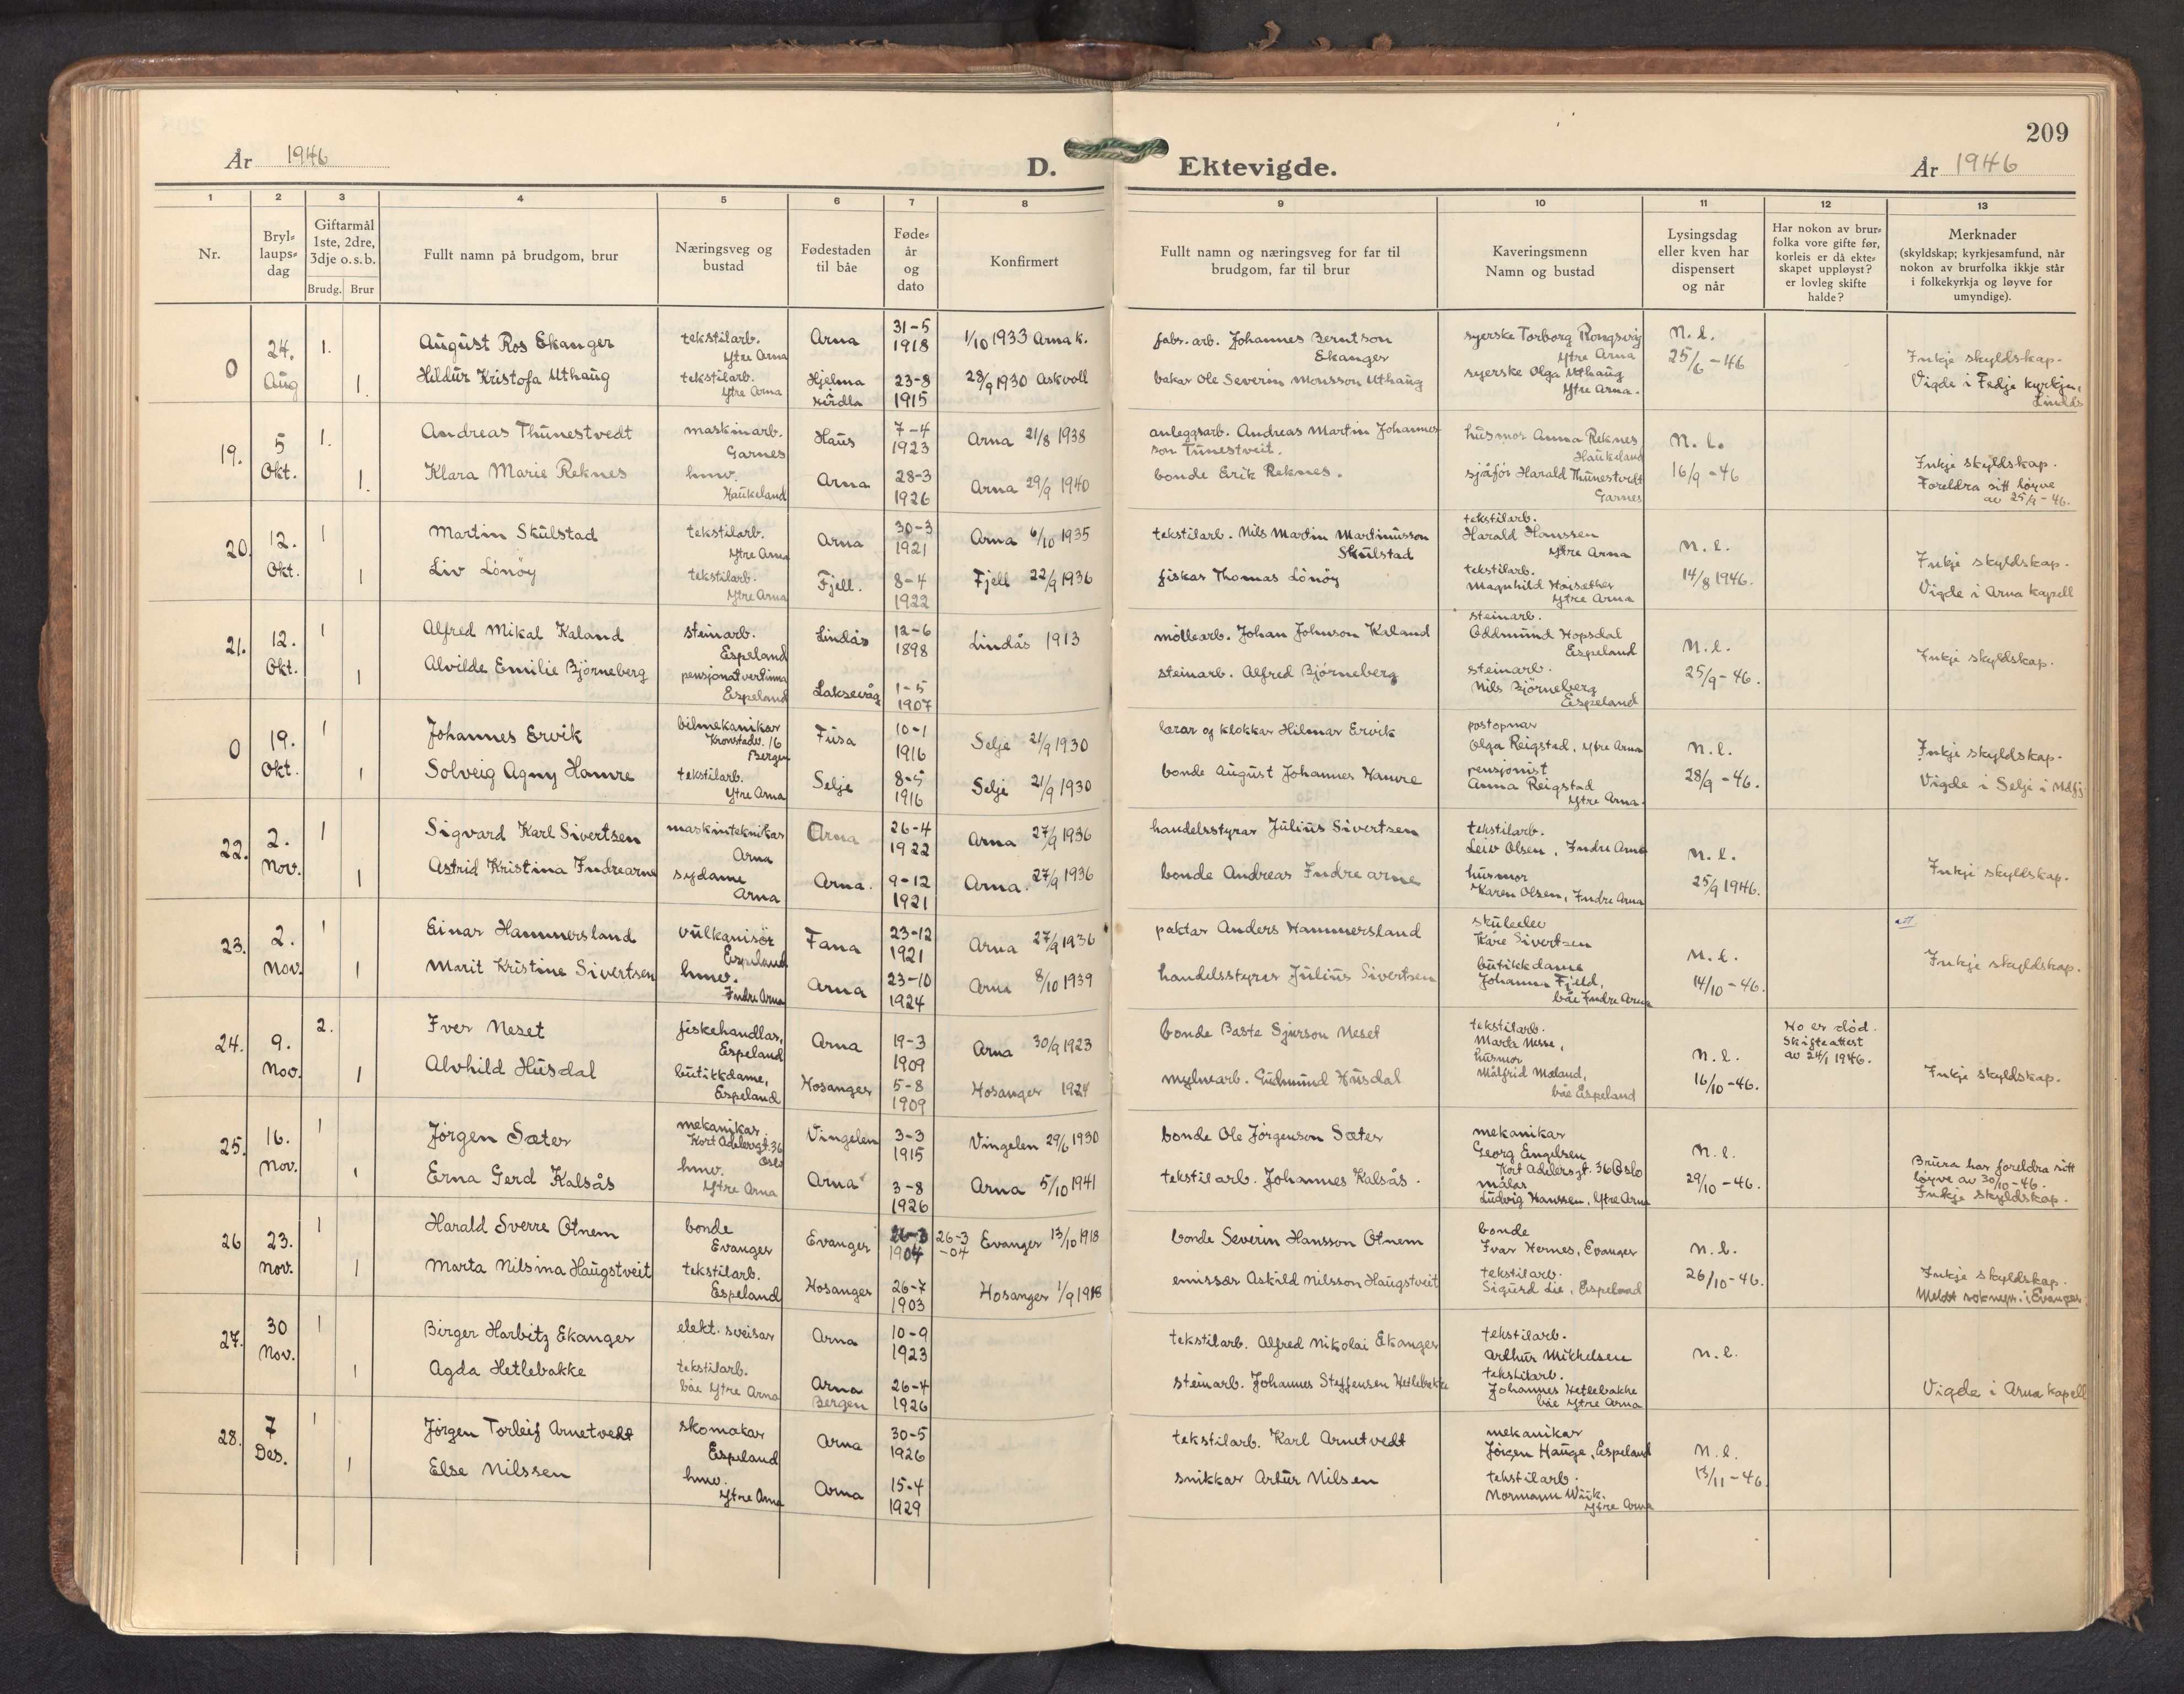 209
År 1946
D. Ektevigde.
År 1946
1 2 3 4 5 6 7 8 9 10 11 12 13
Nr.
Bryl-
laups-
dag
Giftarmål
1ste, 2dre,
3dje o.s.b.
Brudg. Brur
Fullt namn på brudgom, brur
Næringsveg og
bustad
Fødestaden
til båe
Føde-
år
og
dato
Konfirmert
Fullt namn og næringsveg for far til
brudgom, far til brur
Kaveringsmenn
Namn og bustad
Lysingsdag
eller kven har
dispensert
og når
Har nokon av brur-
folka vore gifte før,
korleis er då ekte-
skapet uppløyst?
er lovleg skifte
halde?
Merknader
(skyldskap; kyrkjesamfund, når
nokon av brurfolka ikkje står
i folkekyrkja og løyve for
umyndige).
0
24.
Aug
1.
August Ros Ekanger
tekstilarb.
Ytre Arna
Arna
31-5
1918
1/10 1933 Arna k.
fabr. arb. Johannes Berntson
Ekanger
syerske Torborg Rongsvåg
Ytre Arna
n. l.
25/6 - 46
Inkje skyldskap.
Vigde i Fedje kyrkje,
Lindås
1.
Hildur Kristofa Uthaug
tekstilarb.
Ytre Arna
Hjelma
Herdla
23-8
1915
28/9 1930 Askvoll
bakar Ole Severin Monsson Uthaug
syerske Olga Uthaug
Ytre Arna.
19.
5
Okt.
1.
Andreas Thunestvedt
maskinarb.
Garnes
Haus
7-4
1923
Arna 21/8 1938
anleggsarb. Andreas Martin Johannes-
son Tunestveit.
husmor Anna Reknes
Haukeland
n. l.
16/9 - 46
Inkje skyldskap.
Foreldra sitt løyve
av 25/9 - 46.
1.
Klara Marie Reknes
hmv.
Haukeland
Arna
28-3
1926
Arna 29/9 1940
bonde Erik Reknes.
sjåfør Harald Thunestvedt
Garnes
20.
12.
Okt.
1
Martin Skulstad
tekstilarb.
Ytre Arna
Arna
30-3
1921
Arna 6/10 1935
tekstilarb. Nils Martin Martinusson
Skulstad
tekstilarb.
Harald Hanssen
Ytre Arna
n. l.
14/8 1946.
Inkje skyldskap.
Vigde i Arna kapell
1
Liv Lönöy
tekstilarb.
Ytre Arna
Fjell.
8-4
1922
Fjell 22/9 1936
fiskar Thomas Lönöy
tekstilarb.
Magnhild Høisæther
Ytre Arna
21.
12.
Okt.
1
Alfred Mikal Kaland
steinarb.
Espeland
Lindås
12-6
1898
Lindås 1913
möllearb. Johan Johnson Kaland
steinarb.
Oddmund Hopsdal
Espeland
n. l.
25/9 - 46.
Inkje skyldskap.
1
Alvilde Emilie Björneberg
pensjonatvertinna
Espeland
Laksevåg
1-5
1907
steinarb. Alfred Björneberg
steinarb.
Nils Björneberg
Espeland
0
19.
Okt.
1
Johannes Ervik
bilmekanikar
Kronstadv. 16
Bergen
Fusa
10-1
1916
Selje 21/9 1930
lærar og klokkar Hilmar Ervik
postopnar
Olga Reigstad, Ytre Arna
n. l.
28/9 - 46.
Inkje skyldskap.
Vigde i Selje i Ndfj
1
Solveig Agny Hamre
tekstilarb.
Ytre Arna
Selje
8-5
1916
Selje 21/9 1930
bonde August Johannes Hamre
pensjonist
Anna Reigstad
Ytre Arna.
22.
2.
Nov.
1
Sigvard Karl Sivertsen
maskinteknikar
Arna
Arna
26-4
1922
Arna 27/9 1936
handelsstyrar Julius Sivertsen
tekstilarb.
Leiv Olsen, Indre Arna
n. l.
25/9 1946.
Inkje skyldskap.
1
Astrid Kristina Indrearne
sydame
Arna
Arna.
9-12
1921
Arna. 27/9 1936
bonde Andreas Indrearne
husmor
Karen Olsen, Indre Arna
23.
2.
Nov.
1
Einar Hammersland
vulkanisör
Espeland
Fana
23-12
1921
Arna 27/9 1936
paktar Anders Hammersland
skuleelev
Kåre Sivertsen
n. l.
14/10 - 46.
Inkje skyldskap.
1
Marit Kristine Sivertsen
hmv.
Indre Arna
Arna
23-10
1924
Arna 8/10 1939
handelsstyrar Julius Sivertsen
butikkdame
Johanna Fjeld,
båe Indre Arna
24.
9.
Nov.
2.
Iver Neset
fiskehandlar,
Espeland
Arna
19-3
1909
Arna 30/9 1923
bonde Baste Sjurson Neset
tekstilarb.
Marta Nesse,
n. l.
16/10 - 46.
Ho er död.
Skifteattest
av 24/1 1946.
Inkje skyldskap.
1
Alvhild Husdal
butikkdame,
Espeland
Hosanger
5-8
1909
Hosanger 1924
mylnearb. Gudmund Husdal
husmor
Målfrid Mæland,
båe Espeland
25.
16.
Nov.
1
Jörgen Sæter
mekanikar
Kort Adelersgt. 36
Oslo
Vingelen
3-3
1915
Vingelen 29/6 1930
bonde Ole Jörgenson Sæter
mekanikar
Georg Engelsen
Kort Adelersgt. 36 Oslo
n. l.
29/10 - 46.
Brura har foreldra sitt
løyve av 30/10 - 46.
Inkje skyldskap.
1
Erna Gerd Kalsås
hmv.
Ytre Arna
Arna
3-8
1926
Arna 5/10 1941
tekstilarb. Johannes Kalsås.
målar
Ludvig Hanssen, Ytre Arna
26
23.
Nov.
1
Harald Sverre Otnem
bonde
Evanger
Evanger
26-3
1904
26-3
-04
Evanger 13/10 1918
bonde Severin Hansson Otnem
bonde
Ivar Hernes, Evanger
n. l.
26/10 - 46.
Inkje skyldskap.
Meldt soknepr. i Evanger
1
Marta Nilsina Haugstveit
tekstilarb.
Espeland
Hosanger
26-7
1903
Hosanger 1/9 1918
emissær Askild Nilsson Haugstveit
tekstilarb.
Sigurd Lie, Espeland
27.
30
Nov.
1
Birger Harbitz Ekanger
elekt. sveisar
Arna
10-9
1923
tekstilarb. Alfred Nikolai Ekanger
tekstilarb.
Arthur Mikkelsen
n. l.
Vigde i Arna kapell
1
Agda Hetlebakke
tekstilarb.
båe Ytre Arna
Arna
Bergen
26-4
1926
steinarb. Johannes Steffensen Hetlebakke
tekstilarb.
Johannes Hetlebakke
båe Ytre Arna
28.
7
Des.
1
Jörgen Torleif Arnetvedt
skomakar
Espeland
Arna
30-5
1926
tekstilarb. Karl Arnetvedt
mekanikar
Jörgen Hauge, Espeland
n. l.
13/11 - 46
1
Else Nilssen
hmv.
Ytre Arna
Arna
15-4
1929
snikkar Artur Nilsen
tekstilarb.
Normann Wiik.
Ytre Arna